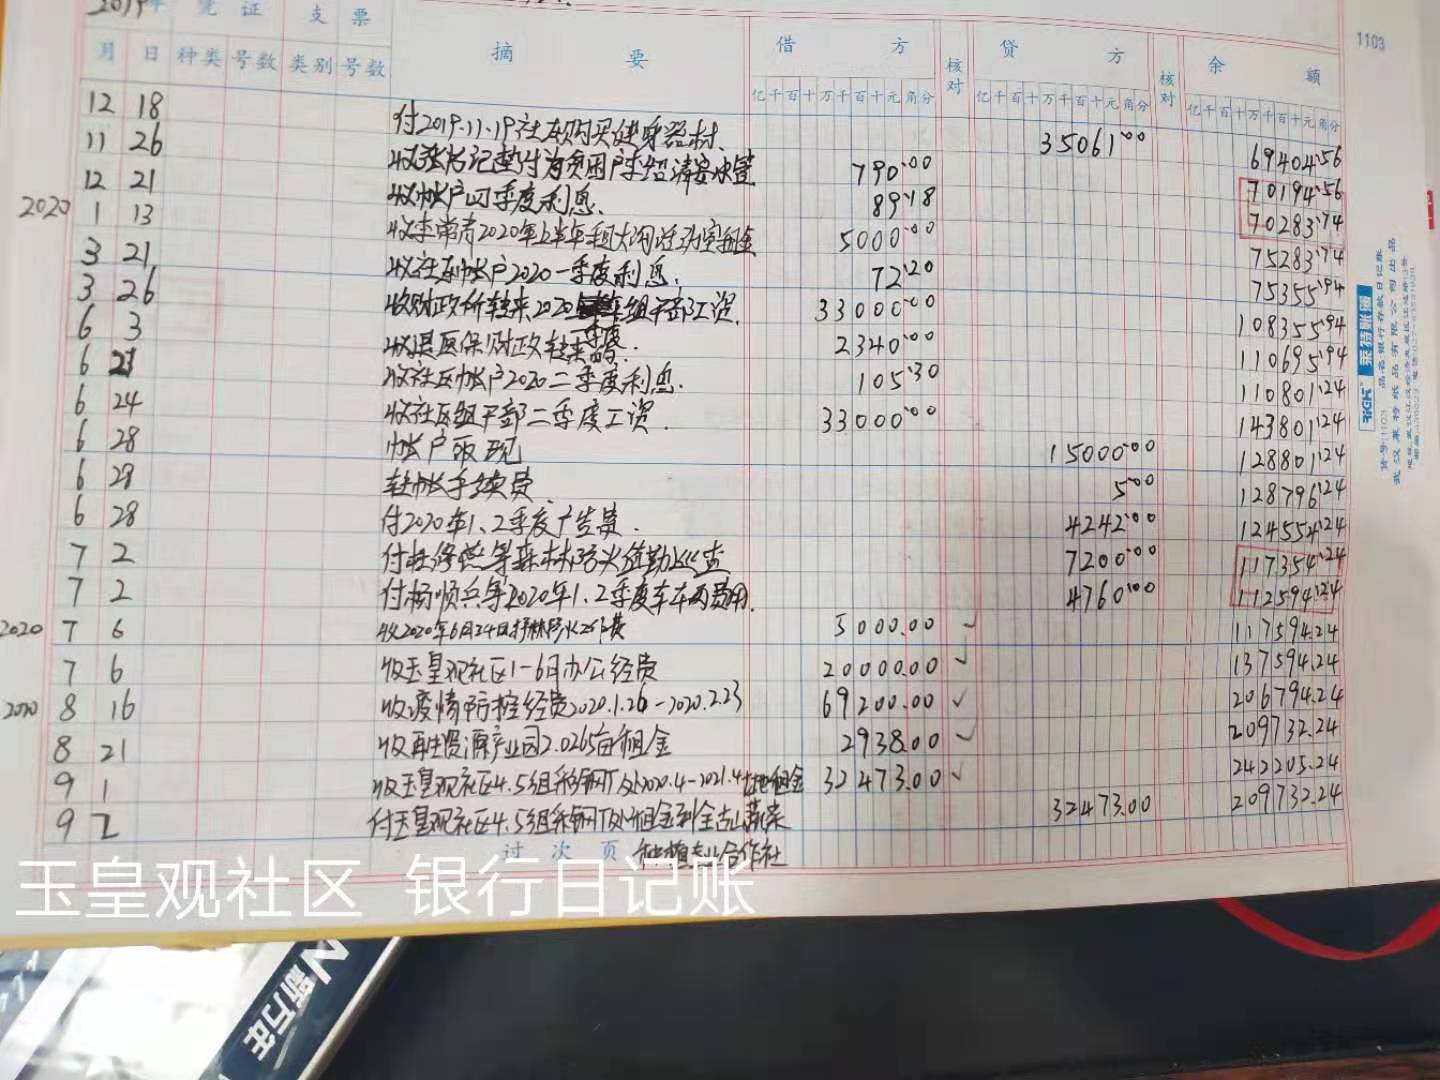 2019年 凭证 支票 摘要 借方 核对 贷方 核对 余额
月 日 种类 号数 类别 号数 亿千百十万千百十元角分 亿千百十万千百十元角分 亿千百十万千百十元角分
1103
12 18 付2019.11.19社区购买健身器材. 35061.00 69404.56
11 26 790.00 70194.56
12 21 收帐户四季度利息. 89.18 70283.74
2020 1 13 5000.00 75283.74
3 21 收社区帐户2020一季度利息. 72.20 75355.94
3 26 收财政所转来2020 组干部工资. 33000.00 108355.94
6 3 2340.00 110695.94
6 21 收社区帐户2020二季度利息. 105.30 110801.24
6 24 收社区组干部二季度工资. 33000.00 143801.24
6 28 帐户取现 15000.00 128801.24
6 28 转帐手续费 5.00 128796.24
6 28 付2020年1、2季度广告费. 4242.00 124554.24
7 2 付杜修世等森林防火值勤巡查 7200.00 117354.24
7 2 付杨顺兵等2020年1、2季度车车两费用. 4760.00 112594.24
2020 7 6 收2020年6月24日 5000.00 117594.24
7 6 收玉皇观社区1-6月办公经费 20000.00 137594.24
2020 8 16 收疫情防控经费2020.1.26-2020.2.23 69200.00 206794.24
8 21 收再生资源产业园2.0265亩租金 2938.00 209732.24
9 1 收玉皇观社区4.5组彩钢厂及2020.4-2021.4土地租金 32473.00 242205.24
9 2 付玉皇观社区4.5组彩钢厂及 租金到全吉山蔬菜 32473.00 209732.24
过次页 种植专业合作社
RIGK 莱特账簿
货号:1103 品名:银行存款日记账
武汉莱特纸品有限公司出品
玉皇观社区 银行日记账
新万年